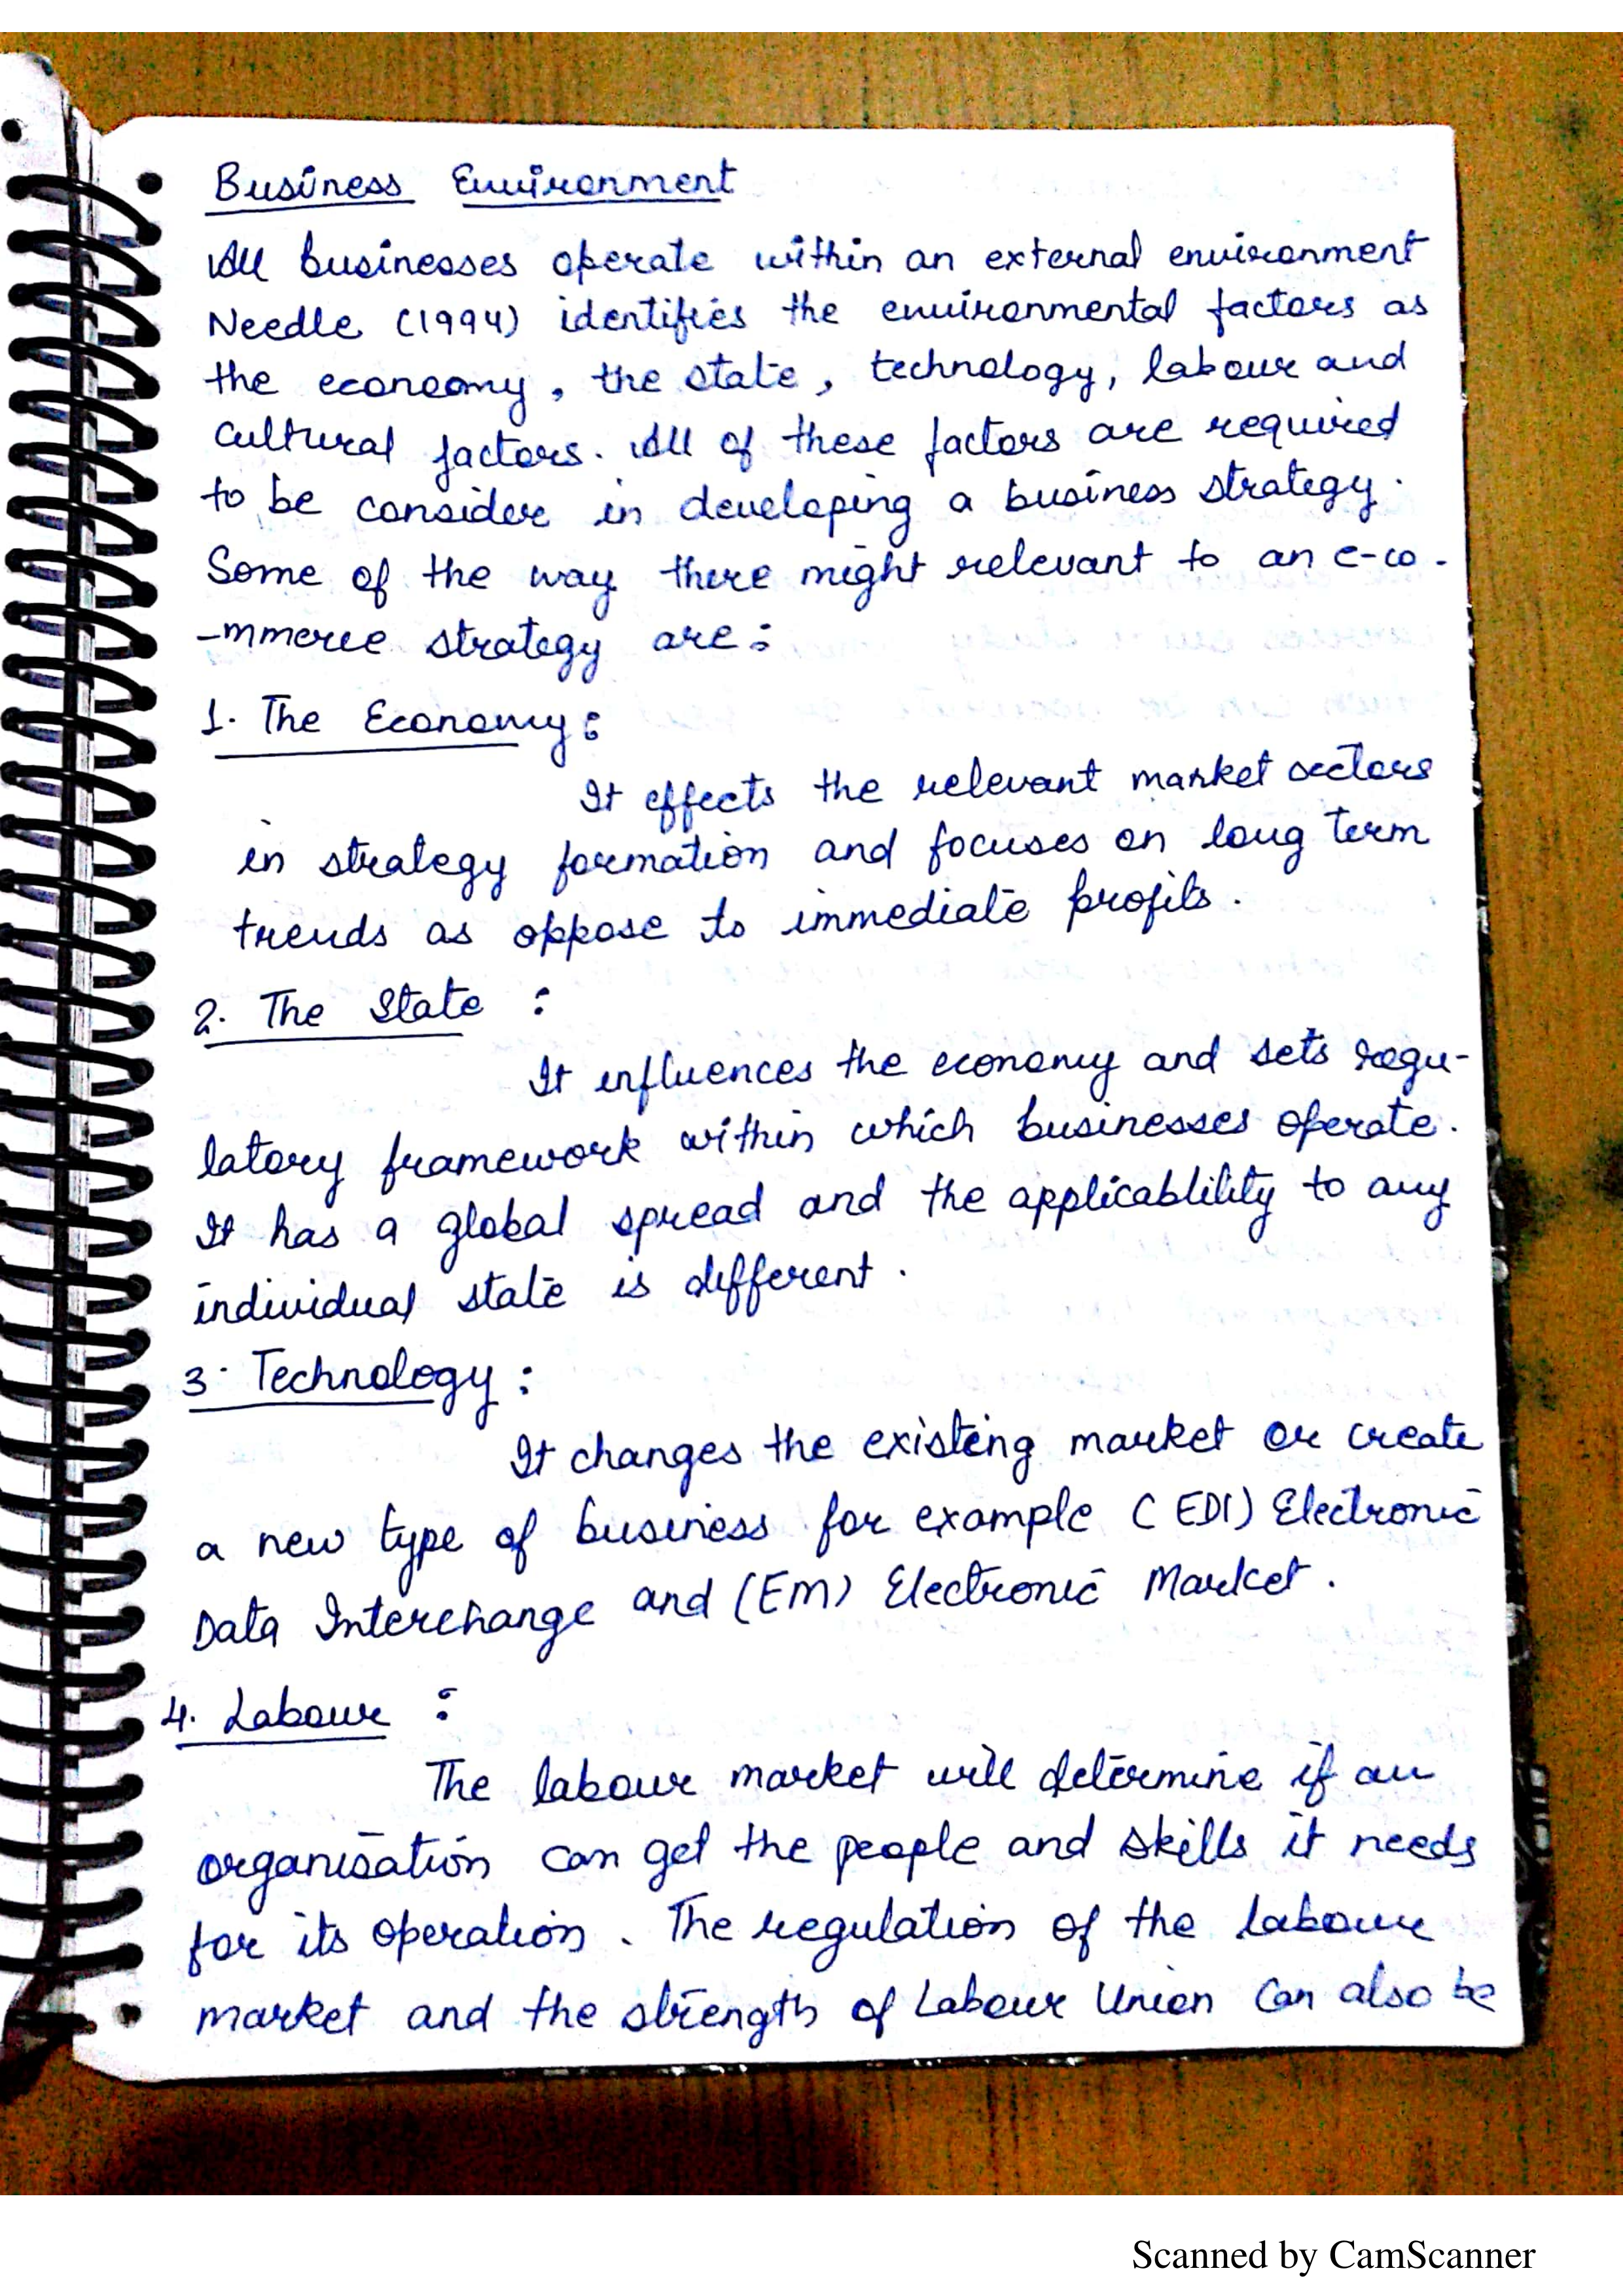 Business Environment
All businesses operate within an external environment
Needle (1994) identifies the environmental factors as
the economy, the state, technology, labour and
cultural factors. All of these factors are required
to be consider in developing a business strategy.
Some of the way there might relevant to an e-co-
-mmerce strategy are:
1. The Economy:
It effects the relevant market sectors
in strategy formation and focuses on long term
trends as oppose to immediate profits.
2. The State :
It influences the economy and sets regu-
latory framework within which businesses operate.
It has a global spread and the applicablility to any
individual state is different.
3. Technology:
It changes the existing market or create
a new type of business for example (EDI) Electronic
Data Interchange and (EM) Electronic Market.
4. Labour :
The labour market will determine if an
organisation can get the people and skills it needs
for its operation. The regulation of the labour
market and the strength of Labour Union can also be
Scanned by CamScanner